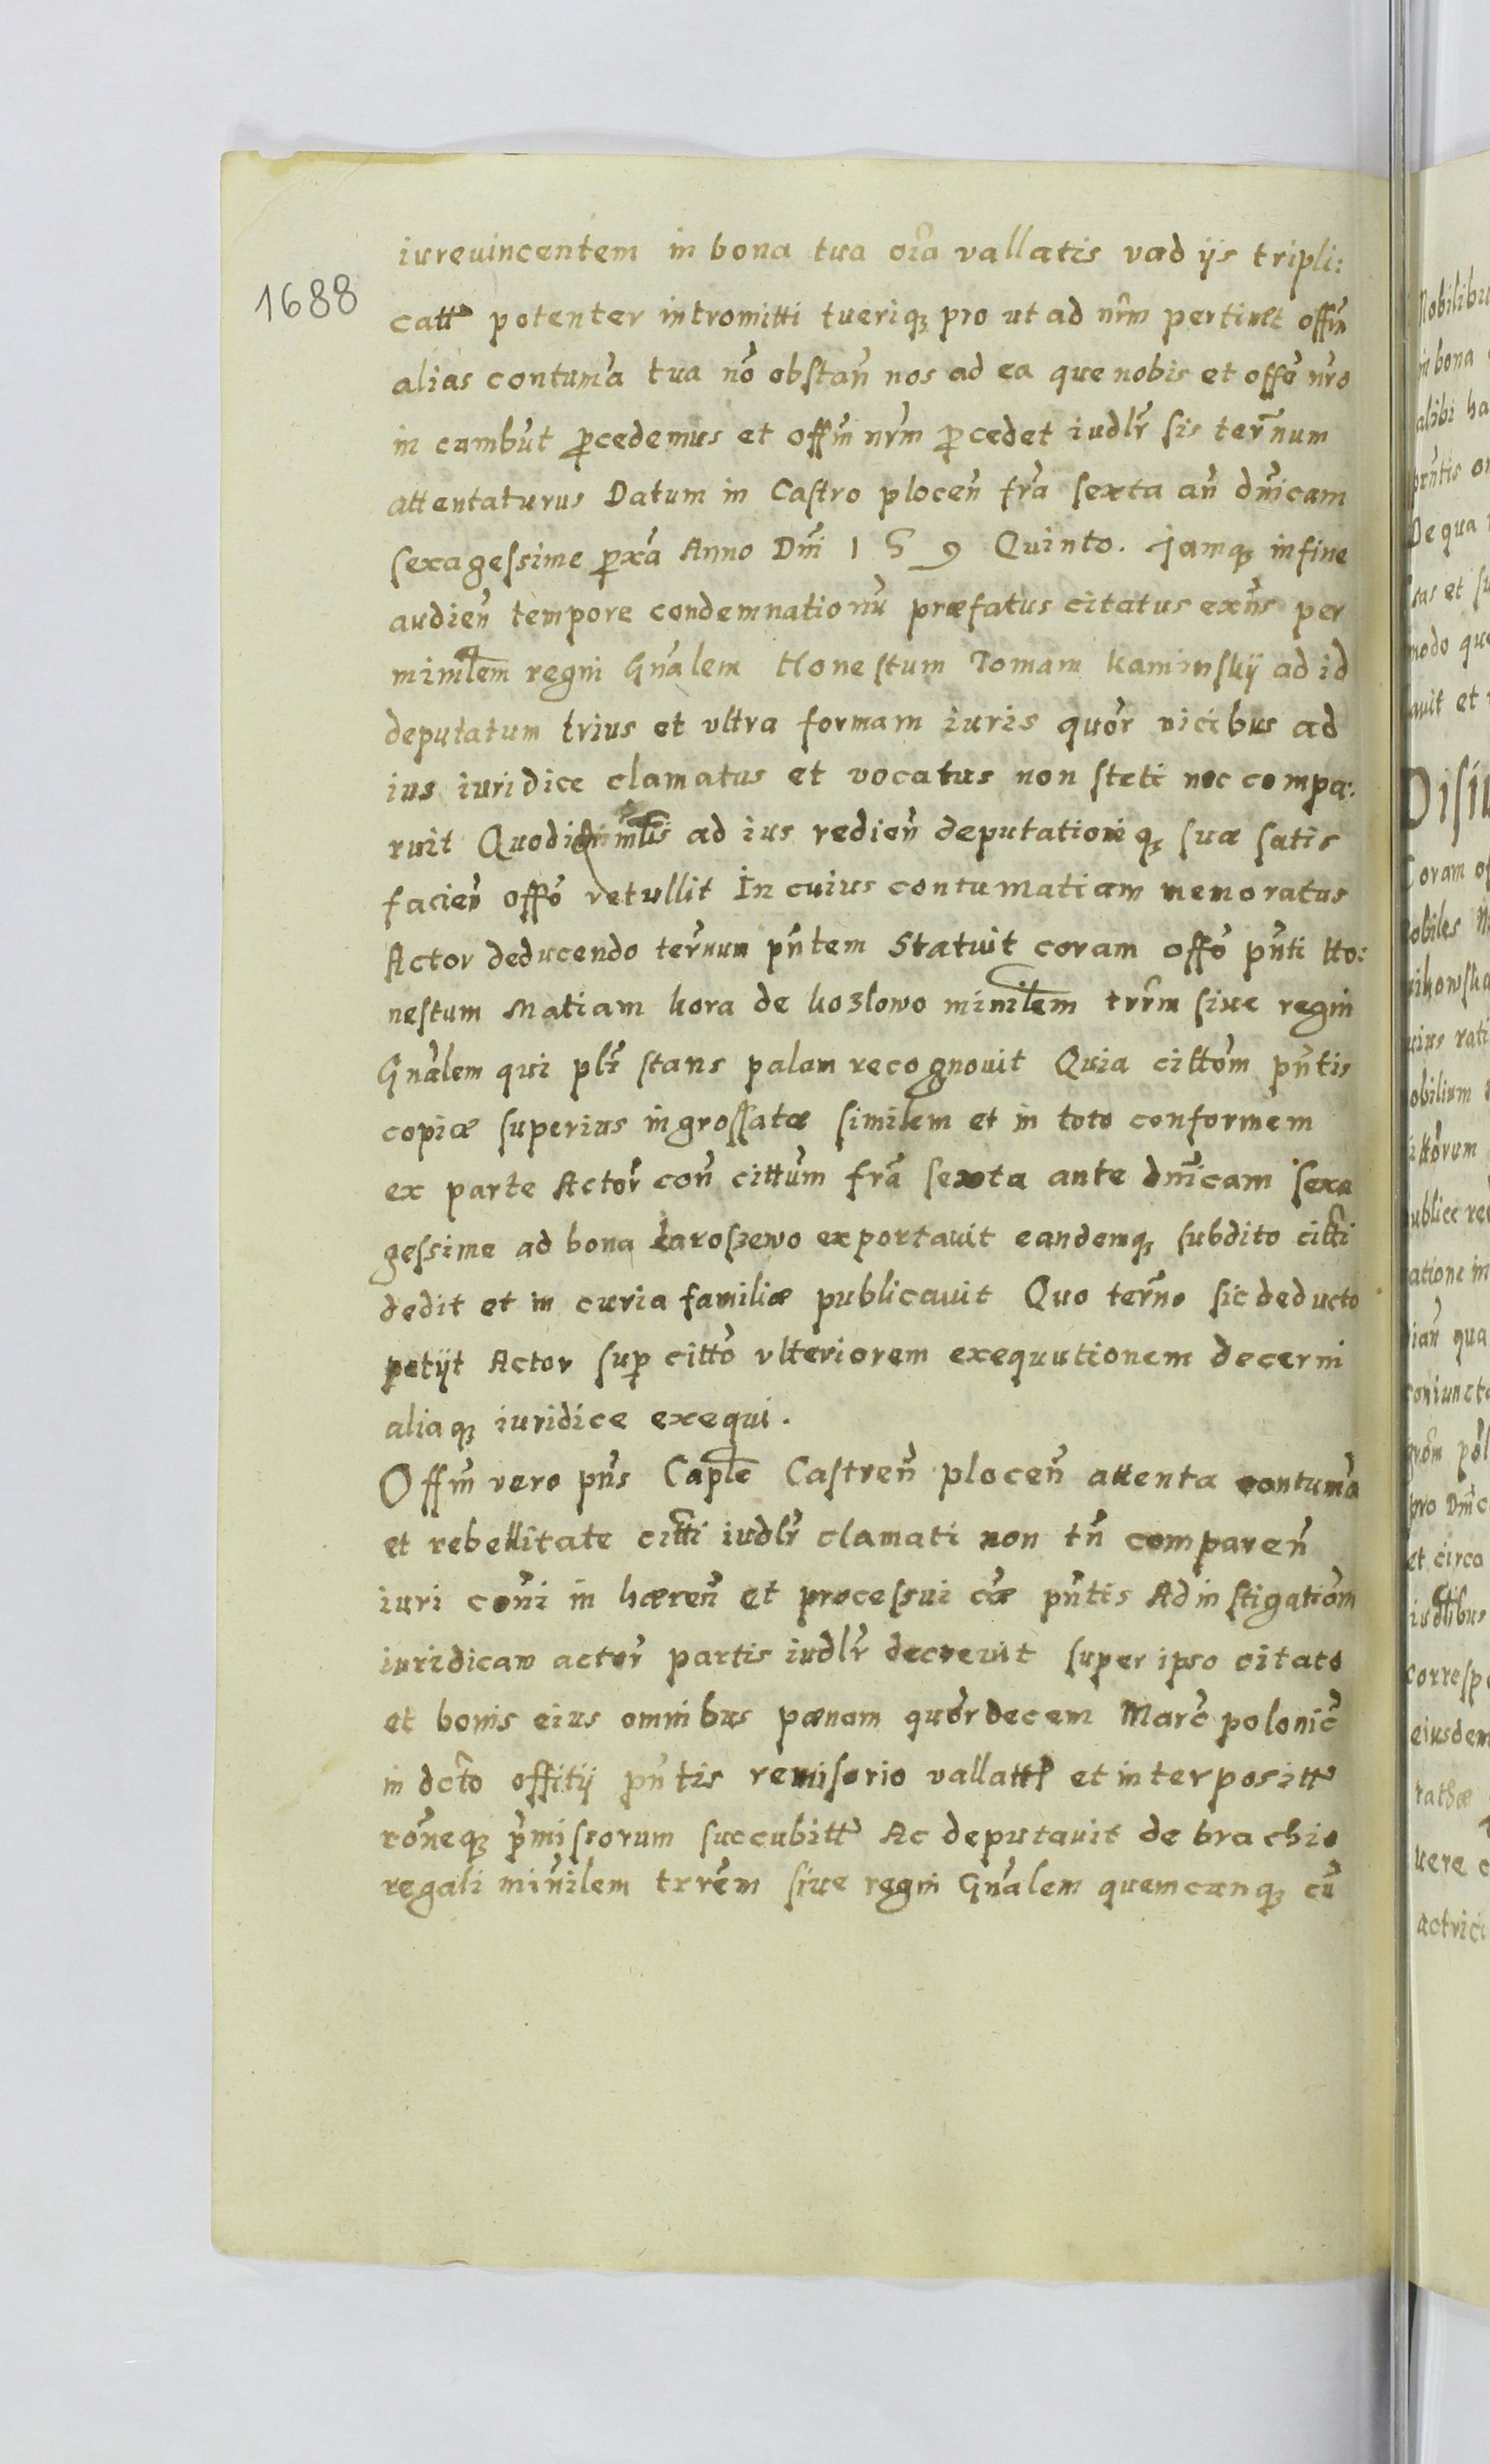 iureuincentem in bona tua oĩa vallatis vadijs tripli:
1688
catt potenter intromitti tueriq; pro ut ad nr̃m pertinet offm̃
alias contum̃a tua nõ obstañ nos ad ea que nobis et offõ nrõ
in cumbũt ꝓcedemus et offm̃ nrm̃ ꝓcedet iudlr̃ sis ter̃num
attentaturus Datum in Castro ploceñ fr̃a sexta añ dnĩcam
sexagessime ꝓxã Anno Dnĩ 1 5 9 Quinto. jamq; in fine
audieñ tempore condemnationũ præfatus citatus exñs per
minilem regni Gnãlem Honestum Tomam kaminskÿ ad id
deputatum trius et vltra formam iuris quõr vicibus ad
ius iuridice clamatus et vocatus non steti nec compa:
ruit Quod ad ius redieñ deputationiq; suæ satis
facieñ offõ retullit In cuius contumatiam memoratus
Actor deducendo ter̃num pñtem Statuit coram offõ pñti Ho:
nestum Matiam kora de kozlowo minilem trr̃m siue regni
Gnãlem qui plr̃ stans palam recognouit Quia cittõm pñtis
copiæ superius ingrossatæ similem et in toto conformem
ex parte Actor̃ coñ cittũm fr̃a sexta ante dnĩcam sexa
gessime ad bona Laroszewo exportauit eandemq; subdito citti
dedit et in curia familiæ publicauit Quo ter̃no sic deducto
petijt Actor suꝑ cittõ vlteriorem exequutionem decerni
aliaq; iuridice exequi.
Offm̃ vero pñs Caplẽ Castreñ ploceñ attenta contum̃a
et rebellitate citti iudlr̃ clamati non tñ compareñ
iuri cõni in hæreñ et processui cæ̃ pñtis Ad instigatiõm
iuridicam actor̃ partis iudlr̃ decreuit super ipso citato
et bonis eius omnibus pænam quõrdecem Marc̃ polonic̃
in dctõ offitij pñtis remisorio vallatt et interpositt
rõneq; pr̃missorum succubitt Ac deputauit de brachio
regali minilem trrẽm siue regni Gnãlem quemcunq; cũ